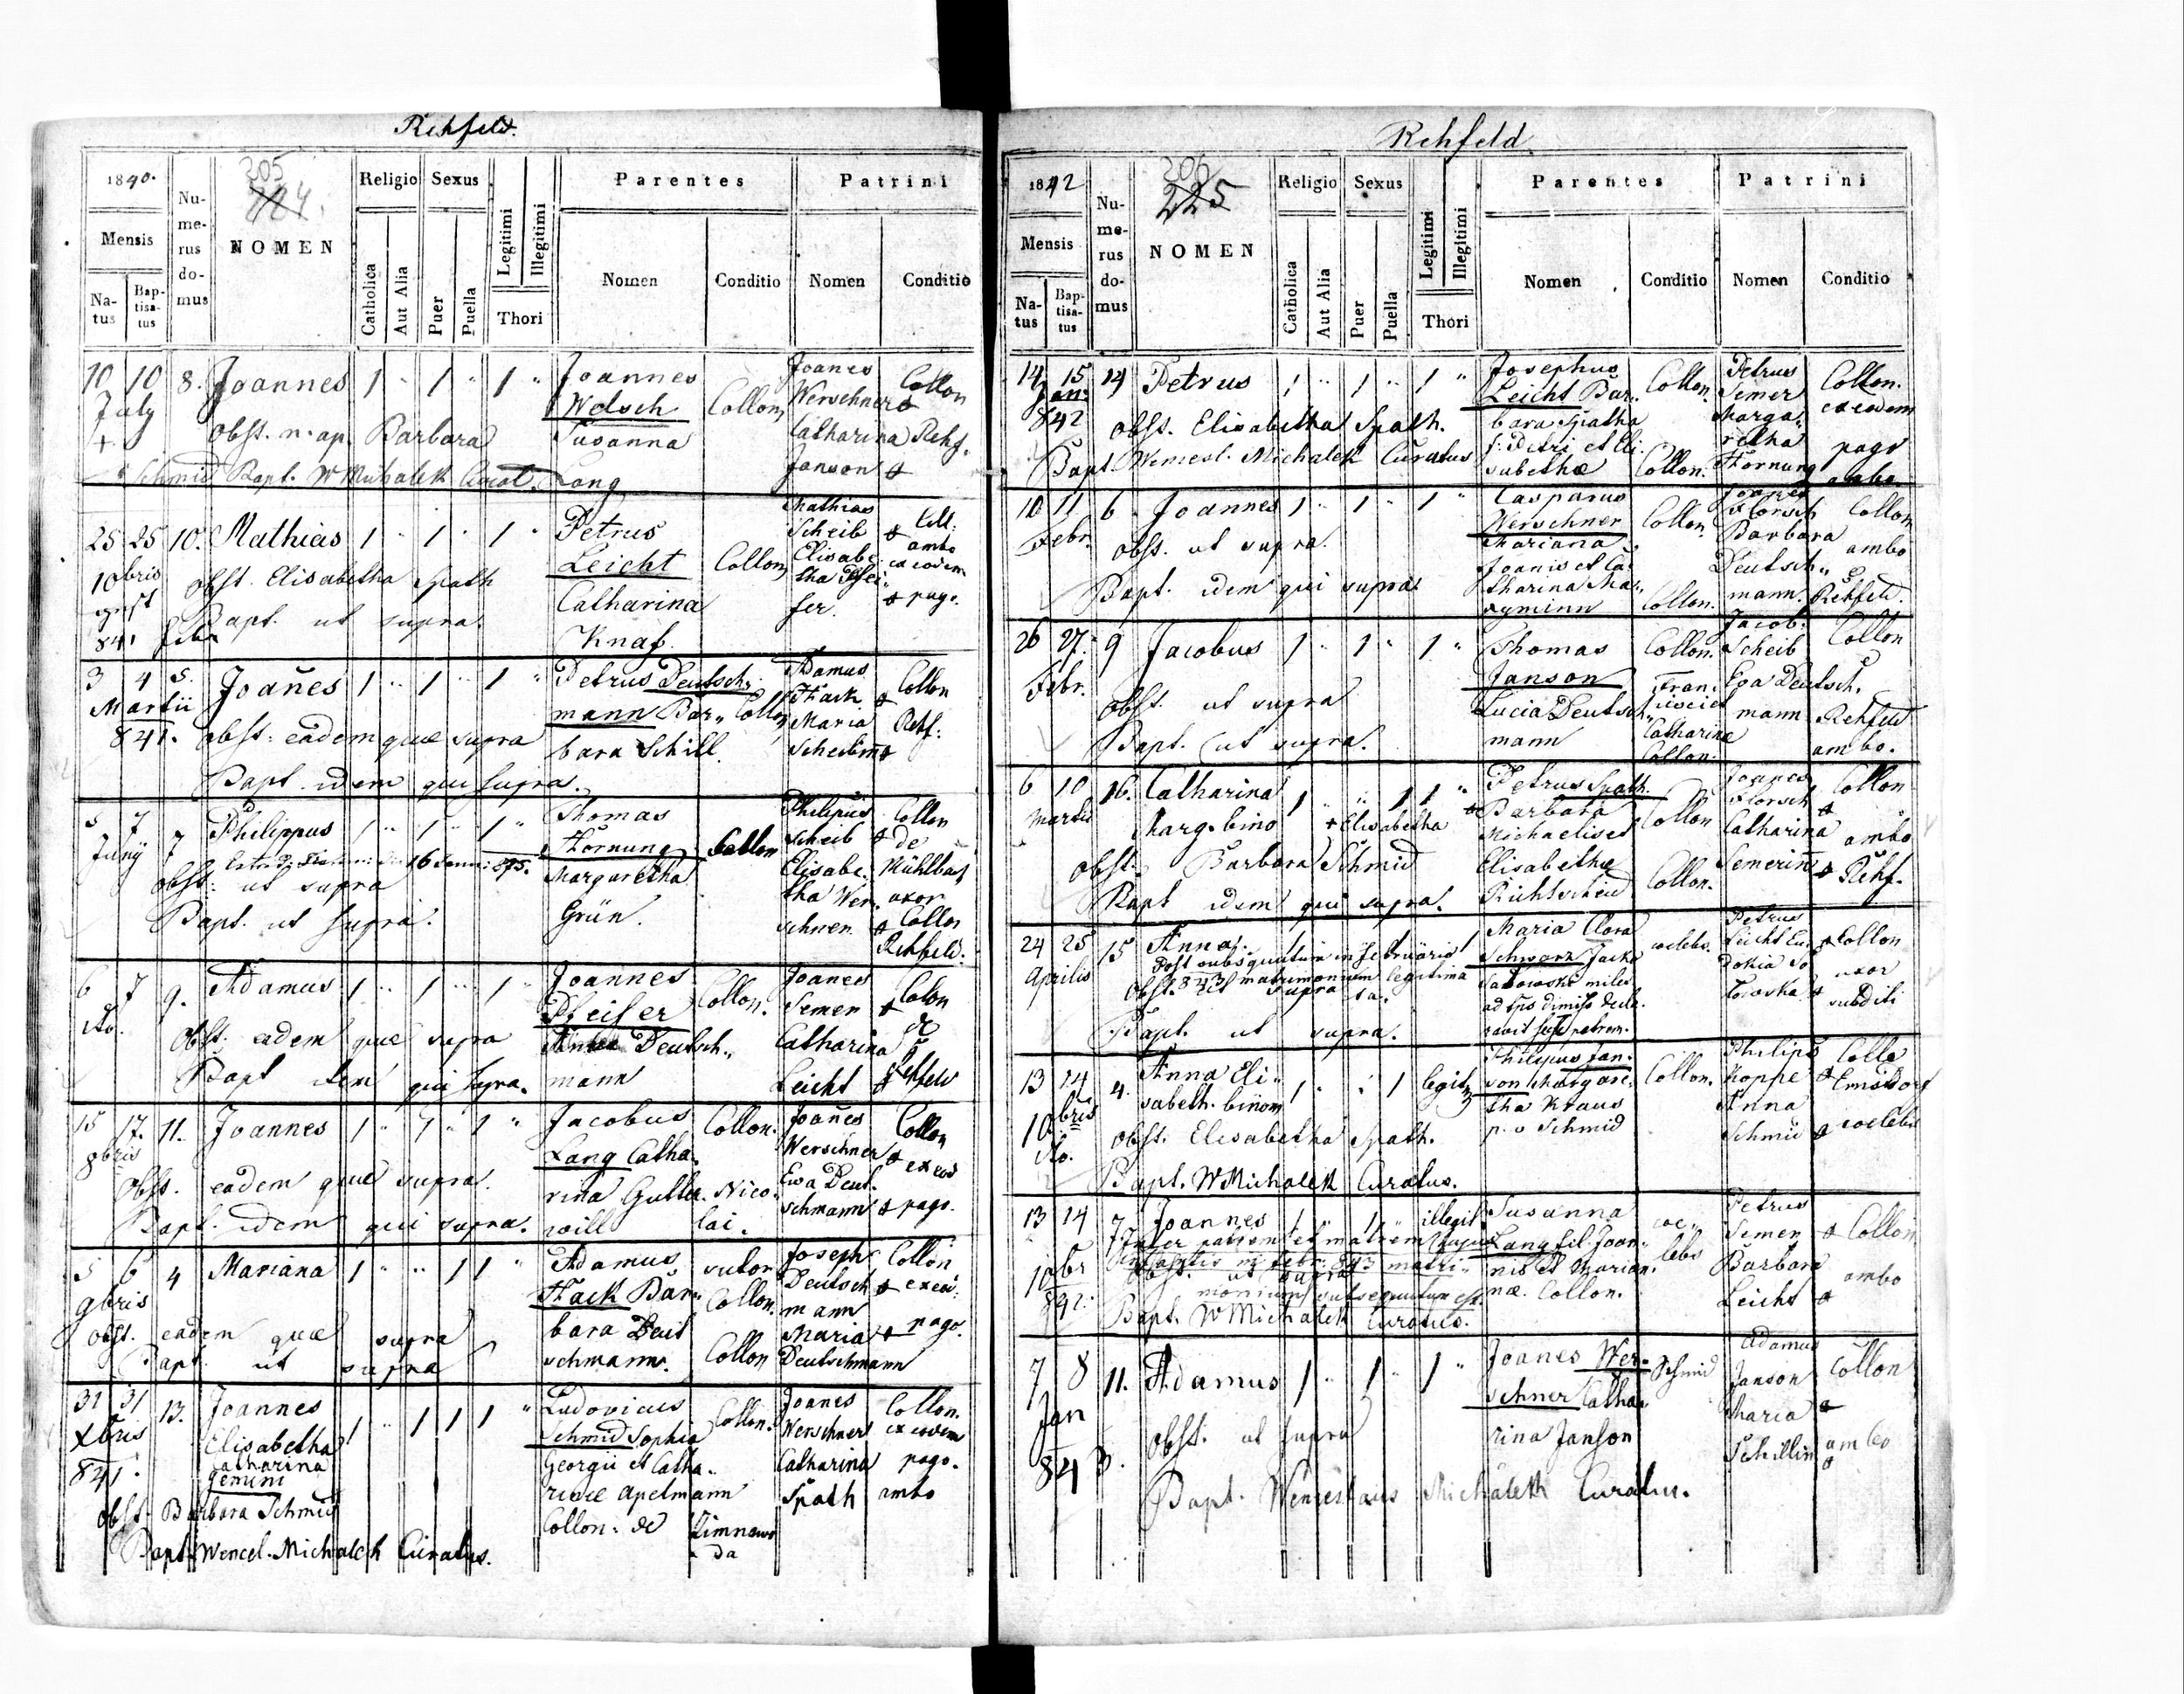 Rehfeld.
1840.
205
224.
Numerus domus
NOMEN
Religio
Sexus
Legitimi
Illegitimi
Parentes
Patrini
Mensis
Natus
Baptisatus
Catholica
Aut Alia
Puer
Puella
Thori
Nomen
Conditio
Nomen
Conditio
10 10 8. Joannes 1 " 1 " 1 " Joannes Joanes Collon
July Welsch Collon Werschner
+ Obst. n. ap. Barbara Susanna Catharina Rehf.
Schmid Bapt. W Michalek Curat. Lang Janson
25 25 10. Mathias 1 " 1 " 1 " Petrus Mathias Scheib Coll.
10bris obst. Elisabetha Spath Leicht Collon Elisabe ambo ex eodem
Bapt. ut supra. Catharina tha fer. pago.
841 Knaf.
3 4 5. Joanes 1 " 1 " 1 " Petrus Deutsch Adamus Collon
Martii mann Bar" Collon Hack Rehf:
841. obst: eadem quae supra bara Schill. Maria
Bapt. idem qui supra.
5 7 7 Philippus 1 " 1 " 1 " Thomas Philipus Collon
Juny Hornung Collon Scheib de
16 Margaretha Elisabe. Mühlbach
obst: ut supra Grün. tha Wer. uxor
Bapt. ut supra. schner. Collon
Rehfeld.
6 7 9. Adamus 1 " 1 " 1 " Joannes Joanes Colon
Pfeifer Collon. Semer
Obst. eadem quae supra Deutsch" Catharina
Bapt idem qui supra. mann Leicht Rehfeld
15 17. 11. Joannes 1 " 1 " 1 " Jacobus Collon. Joanes Collon
8bris Lang Catha. Werschner ex eod
Obst. eadem quae supra. rina Nico Eva Deut. pago.
Bapt. idem qui supra. will lai. schmann
5 6 4 Mariana 1 " " 1 1 " Adamus sutor Joseph Collon
9bris Hack Bar" Collon. Deutsch
obst. eadem quae supra bara Deut mann pago.
Bapt. ut supra schmann. Collon Maria
Deutschmann
31 31 13. Joannes 1 " 1 1 1 " Ludovicus Collon. Joanes Collon.
Xbris Elisabetha Schmid Sophia Werschner ex eodem
841. Catharina Georgii et Catha. Catharina pago.
gemini rinae Apelmann Spath ambo
obst. Barbara Schmid Collon: de Zimnawo
Bapt. Wencel. Michalek Curatus. da
Rehfeld
1842
206
225
Numerus domus
NOMEN
Religio
Sexus
Legitimi
Illegitimi
Parentes
Patrini
Mensis
Natus
Baptisatus
Catholica
Aut Alia
Puer
Puella
Thori
Nomen
Conditio
Nomen
Conditio
14 15 14 Petrus 1 " 1 " 1 " Josephus Collon. Petrus Collon.
Jan: Leicht Bar. Semer ex eodem
842 obst. Elisabetha Spath. bara Spatha Marga"
f: Petri et Eli. retha pago
Bapt. Wencesl. Michalek Curatus sabethae Collon. Hornung ambo.
10 11 6 Joannes 1 " 1 " 1 " Casparus Joanes Collon
Febr. Werschner Collon. Florsch
obst. ut supra. Mariana Barbara ambo
Joanis et Ca Deutsch"
Bapt. idem qui supra. tharina Collon. mann. Rehfeld.
26 27. 9 Jacobus 1 " 1 " 1 " Thomas Collon. Jacob: Collon
Febr. Janson Scheib
obst. ut supra Lucia Deutsch Eva Deutsch. Rehfeld
Bapt. ut supra. mann Catharina mann ambo.
Collon.
6 10 16. Catharina 1 " " 1 1 " Petrus Spath. Joanes Collon
Martii Marg. bino + Elisabetha Barbara Collon Florsch
Michaelis et Catharina ambo
obst. Barbara Schmid Elisabetha Rehf.
Bapt idem qui supra. Collon.
24 25 15 Anna Maria Clara coelebs. Petrus Collon
Aprilis Post subsequutum in februario Schwarz Leicht Eu
843 matrimonium legitima dokia So uxor
Obst. ut supra ta. miles subditi
Bapt. ut supra.
13 14 4. Anna Eli" 1 " " 1 legit Philipus Jan. Collon. Philips Collo
10bris sabeth. binom son Margare. Koppe Ernsdorf
obst. Elisabetha Spath. tha Kraus Anna
p. v Schmid Schmid coelebs
Bapt. W Michalek Curatus.
13 14 7 Joannes 1 " 1 " illegit Susanna coe" Petrus Collon
Inter patrem et matrem hujus Lang fil. Joan" lebs Semer
10br Infantis in febr. 843 matri" nis et Marian. Barbara ambo
842. obst. ut supra nae. Collon. Leicht
monium subsequutum est.
Bapt. W Michalek Curatus.
7 8 11. Adamus 1 " 1 " 1 " Joanes Wer" Schmid Adamus Collon
Jan schner Catha. Janson
843. obst. ut supra rina Janson Maria
Schillin ambo
Bapt. Wenceslaus Michalek Curatus.